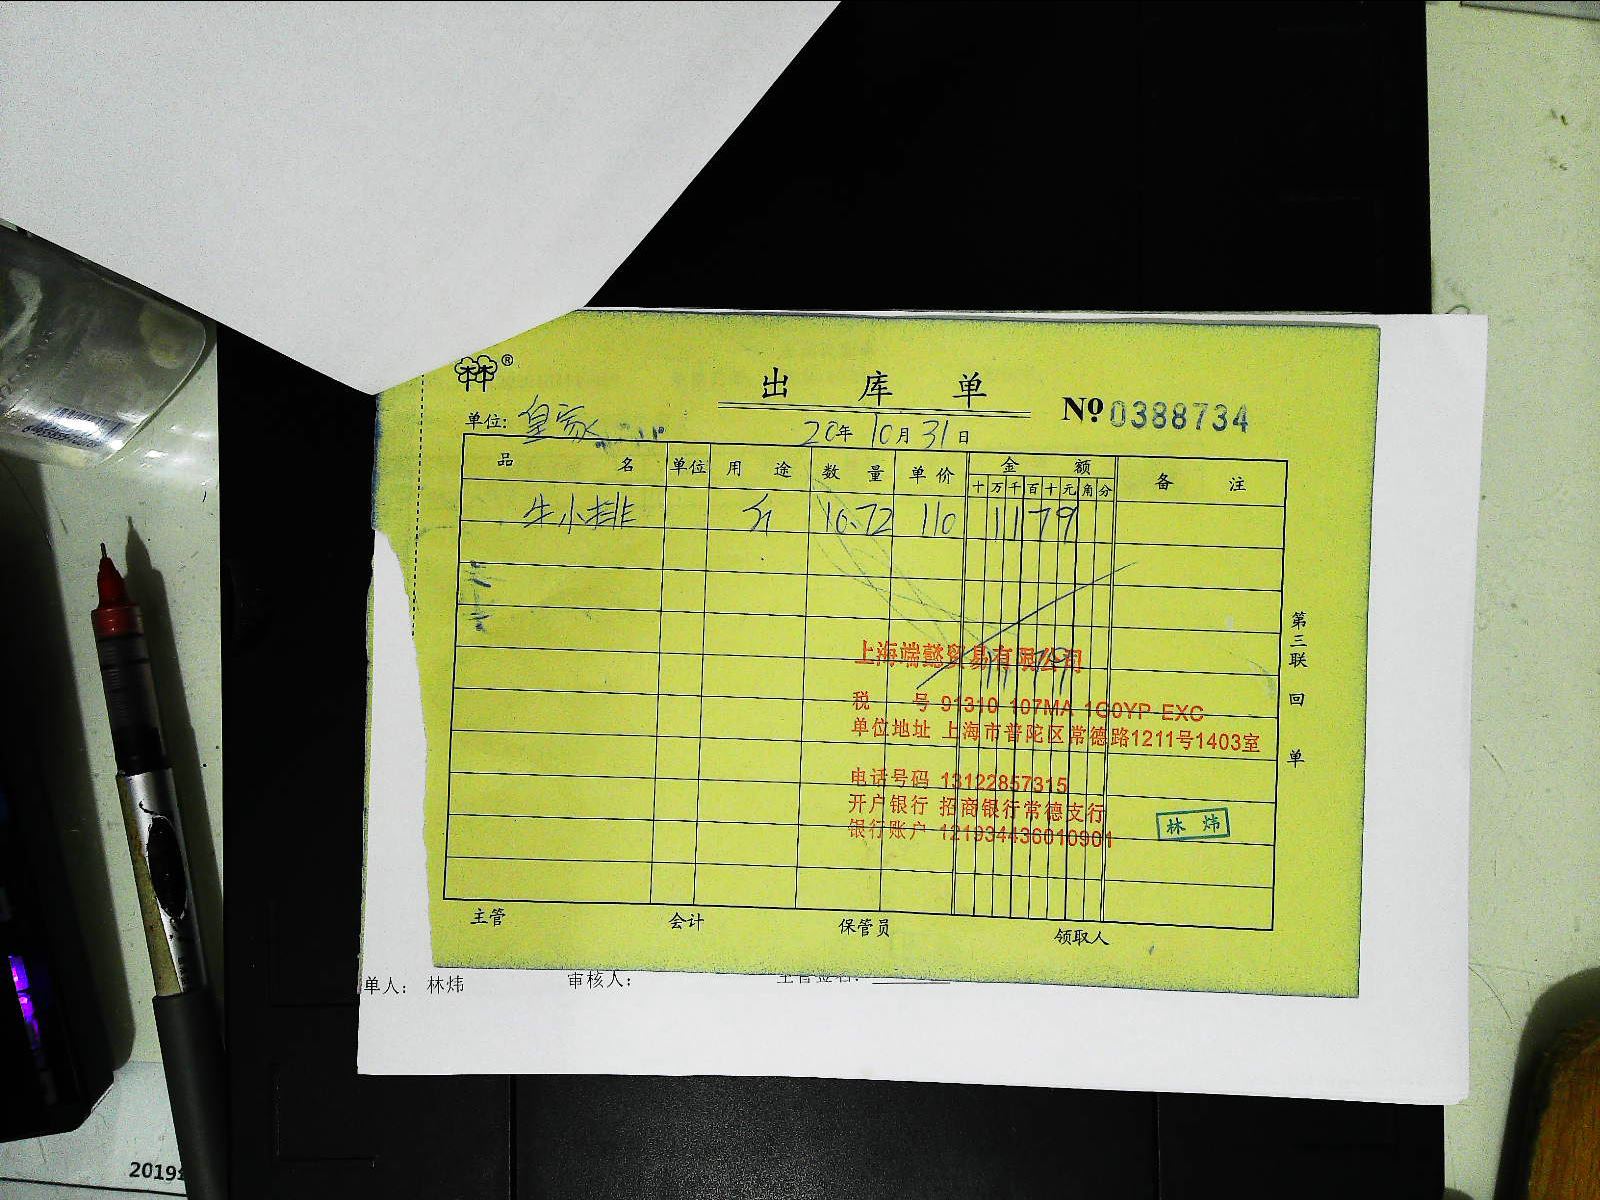 林林®
出库单
№ 0388734
单位: 皇家
20年 10月 31日
品名 单位 用途 数量 单价 金额 备注
十 万 千 百 十 元 角 分
牛小排 斤 10.72 110 1179
第三联 回单
上海端懿贸易有限公司
税 号 91310 107MA 1G0YP EXC
单位地址 上海市普陀区常德路1211号1403室
电话号码 13122857315
开户银行 招商银行常德支行
银行账户 121934436010901
林 炜
主管 会计 保管员 领取人
单人: 林炜 审核人:
2019